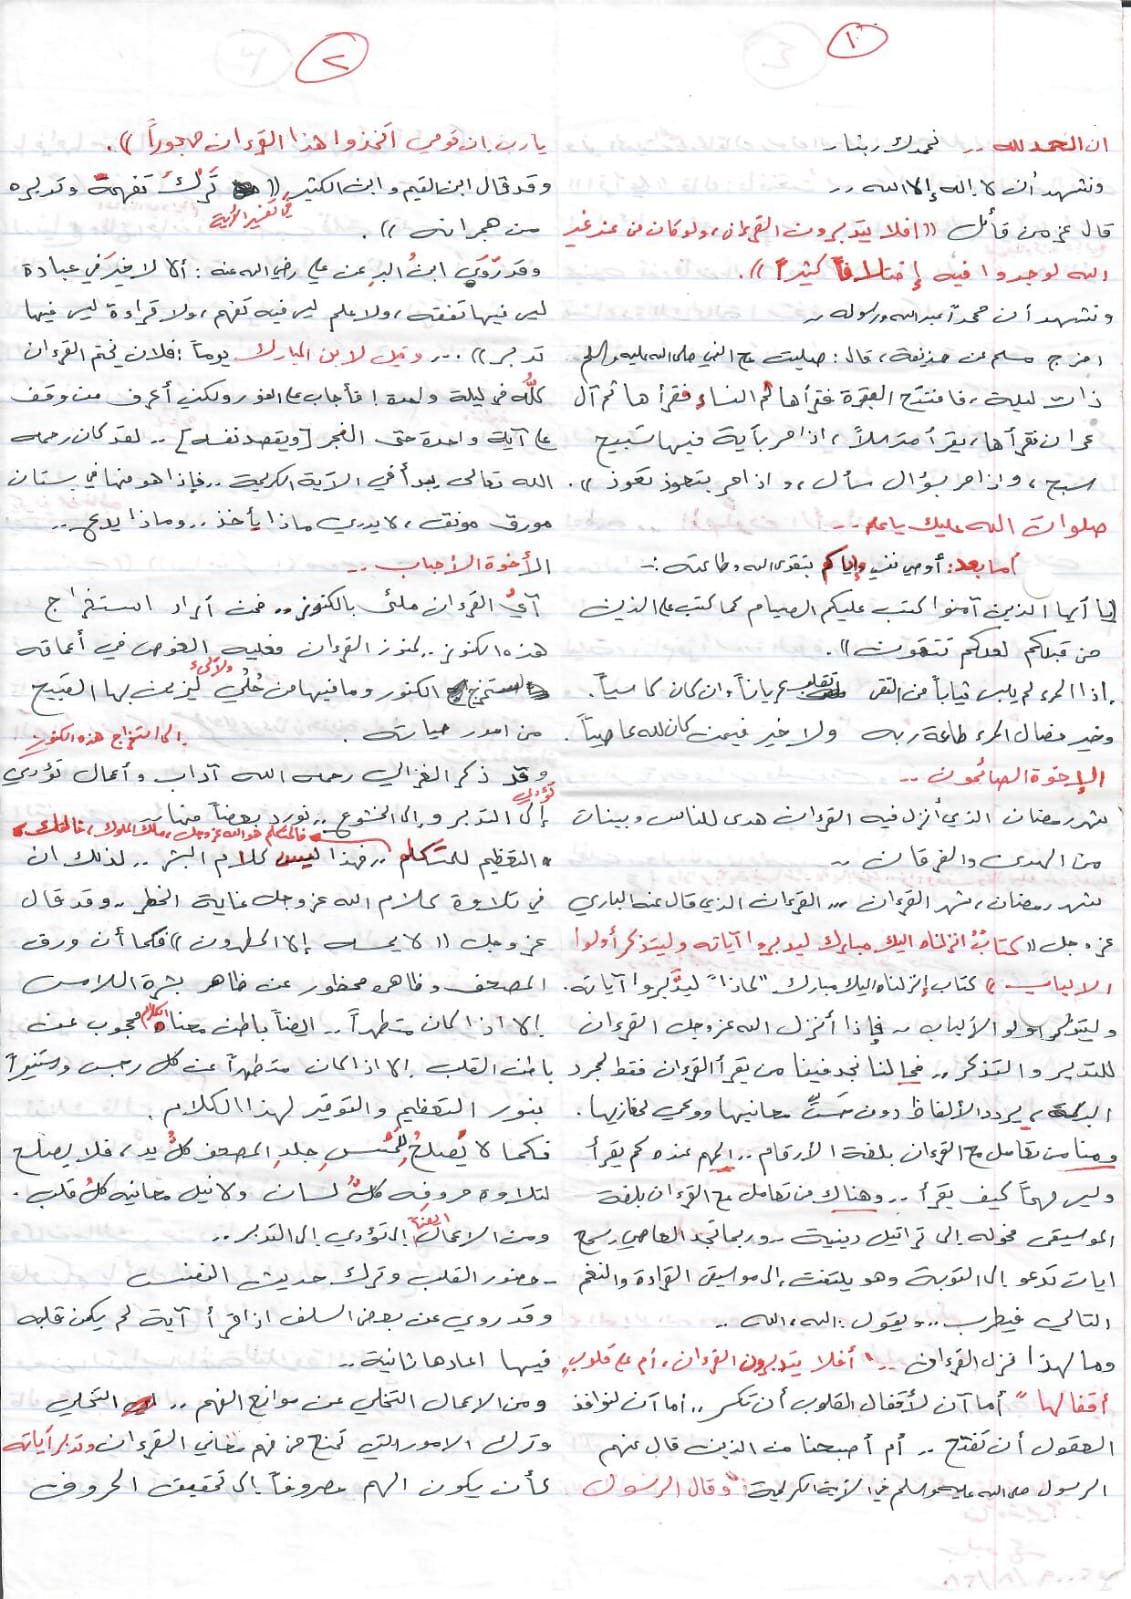 ١
ان الحمد لله .. نحمدك ربنا ..
ونشهد أن لا إله إلا الله ..
قال عز من قائل (( افلا يتدبرون القرءان ، ولو كان من عند غير
الله لوجدوا فيه إختلافاً كثيراً )).
ونشهد أن محمداً عبد الله ورسوله ..
اخرج مسلم عن حذيفة ، قال : صليت مع النبي صلى الله عليه وسلم
ذات ليلة ، فافتتح البقرة فقرأها ثم النساء فقرأها ثم آل
عمران فقرأها ، يقرأ مترسلاً ، اذا مر بآية فيها تسبيح
سبح ، واذا مر بسؤال سأل ، واذا مر بتعوذ تعوذ )).
صلوات الله عليك يا علم ..
أما بعد : أوصي نفسي وإياكم بتقوى الله وطاعته :-
(يا أيها الذين آمنوا كتب عليكم الصيام كما كتب على الذين
من قبلكم لعلكم تتقون )).
اذا المرء لم يلبس ثياباً من التقى تقلب عرياناً وان كان كاسياً .
وخير خصال المرء طاعة ربه ولا خير فيمن كان لله عاصياً .
الإخوة الصائمون ..
شهر رمضان الذي أنزل فيه القرءان هدى للناس وبينات
من الهدى والفرقان ..
شهر رمضان ، شهر القرءان ... القرءان الذي قال عنه الباري
عز وجل (( كتابٌ انزلناه اليك مبارك ليدبروا آياته وليتذكر أولوا
الالباب )) كتاب إنزلناه اليك مبارك "لماذا" ليدَّبروا آياته .
وليتذكر أولو الألباب .. فإذا أنزل الله عز وجل القرءان
للتدبر والتذكر .. فما لنا نجد فينا من يقرأ القرءان فقط لمجرد
البركة ، يردد الألفاظ دون معانيها ووعي لمغازيها .
ومنا من تعامل مع القرءان بلغة الأرقام .. المهم عنده كم يقرأ
وليس مهماً كيف يقرأ .. وهناك من تعامل مع القرءان بلغة
الموسيقى فحوله إلى تراتيل دينية .. وربما تجد العاصي يسمع
ايات تدعو إلى التوبة وهو يلتفت إلى موسيقى القراءة والنغم
التالي فيطرب .. ويقول : الله ، الله ..
وما لهذا نزل القرءان .. " أفلا يتدبرون القرءان ، أم على قلوبٍ
أقفالها " أما آن لأقفال القلوب أن تكسر .. أما آن لنوافذ
العقول أن تفتح .. أم أصبحنا من الذين قال عنهم
الرسول صلى الله عليه وسلم في الآية الكريمة : " وقال الرسول
٢
يا رب ان قومي اتخذوا هذا القرءان مهجوراً )).
وقد قال ابن القيم وابن الكثير في تفسير الآية (( تَرْكُ تفهمه وتدبره
من هجرانه )).
وقد رَوَى ابنُ البر عن علي رضي الله عنه : ألا لا خيرَ في عبادة
ليس فيها تفقه ، ولا علم ليس فيه تفهم ، ولا قراءة ليس فيها
تدبر )) ... وقيل لابن المبارك يوماً : فلان يختم القرءان
كلَّه في ليلة واحدة ! فأجاب على الفور ولكني أعرف من وقف
على آية واحدة حتى الفجر [ ويقصد نفسه ] .. لقد كان رحمه
الله تعالى يبدأ في الآية الكريمة .. فإذا هو منها في بستان
مورق مونق ، لا يدري ماذا يأخذ .. وماذا يدع ..
الأخوة الأحباب ..
آيُ القرءان ملئى بالكنوز .. فمن أراد استخراج
هذه الكنوز .. كنوز القرءان فعليه الغوص في أعماقه
ليستخرج الكنوز وما فيها من حُلي ولآلىء ليزين بها القبيح
من امور حياته .
وقد ذكر الغزالي رحمه الله آداب وأعمال تؤدي إلى استخراج هذه الكنوز
تؤدي إلى التدبر وإلى الخشوع .. نورد بعضاً منها ..
• التعظيم للمتكلم فالمتكلم هو الله عز وجل ، ملك الملوك ، .. فهذا ليس كلام البشر .. لذلك ان
في تلاوة كلام الله عز وجل غاية الخطر .. وقد قال
عز وجل (( لا يمسه إلا المطهرون )) فكما أن ورق
المصحف وظاهره محظور عن ظاهر بشرة اللامس
إلا اذا كان متطهراً .. ايضاً باطن معناه محجوب عن
باطن القلب إلا اذا كان متطهراً عن كل رجس ومستنيراً
بنور التعظيم والتوقير لهذا الكلام .
فكما لا يُصلحُ لِلَمْسِ جلدِ المصحف كلُ يد ، فلا يصلح
لتلاوة حروفه كلُّ لسان ولا نيل معانيه كلُ قلب .
ومن الاعمال ايضاً التي تؤدي الى التدبر ..
- حضور القلب وترك حديث النفس
وقد روي عن بعض السلف اذا قرأ آية لم يكن قلبه
فيها اعادها ثانية ..
ومن الاعمال التخلي عن موانع الفهم .. التخلي
وترك الامور التي تمنع من فهم معاني القرءان وتدبر آياته
كأن يكون الهم مصروفاً إلى تحقيق الحروف